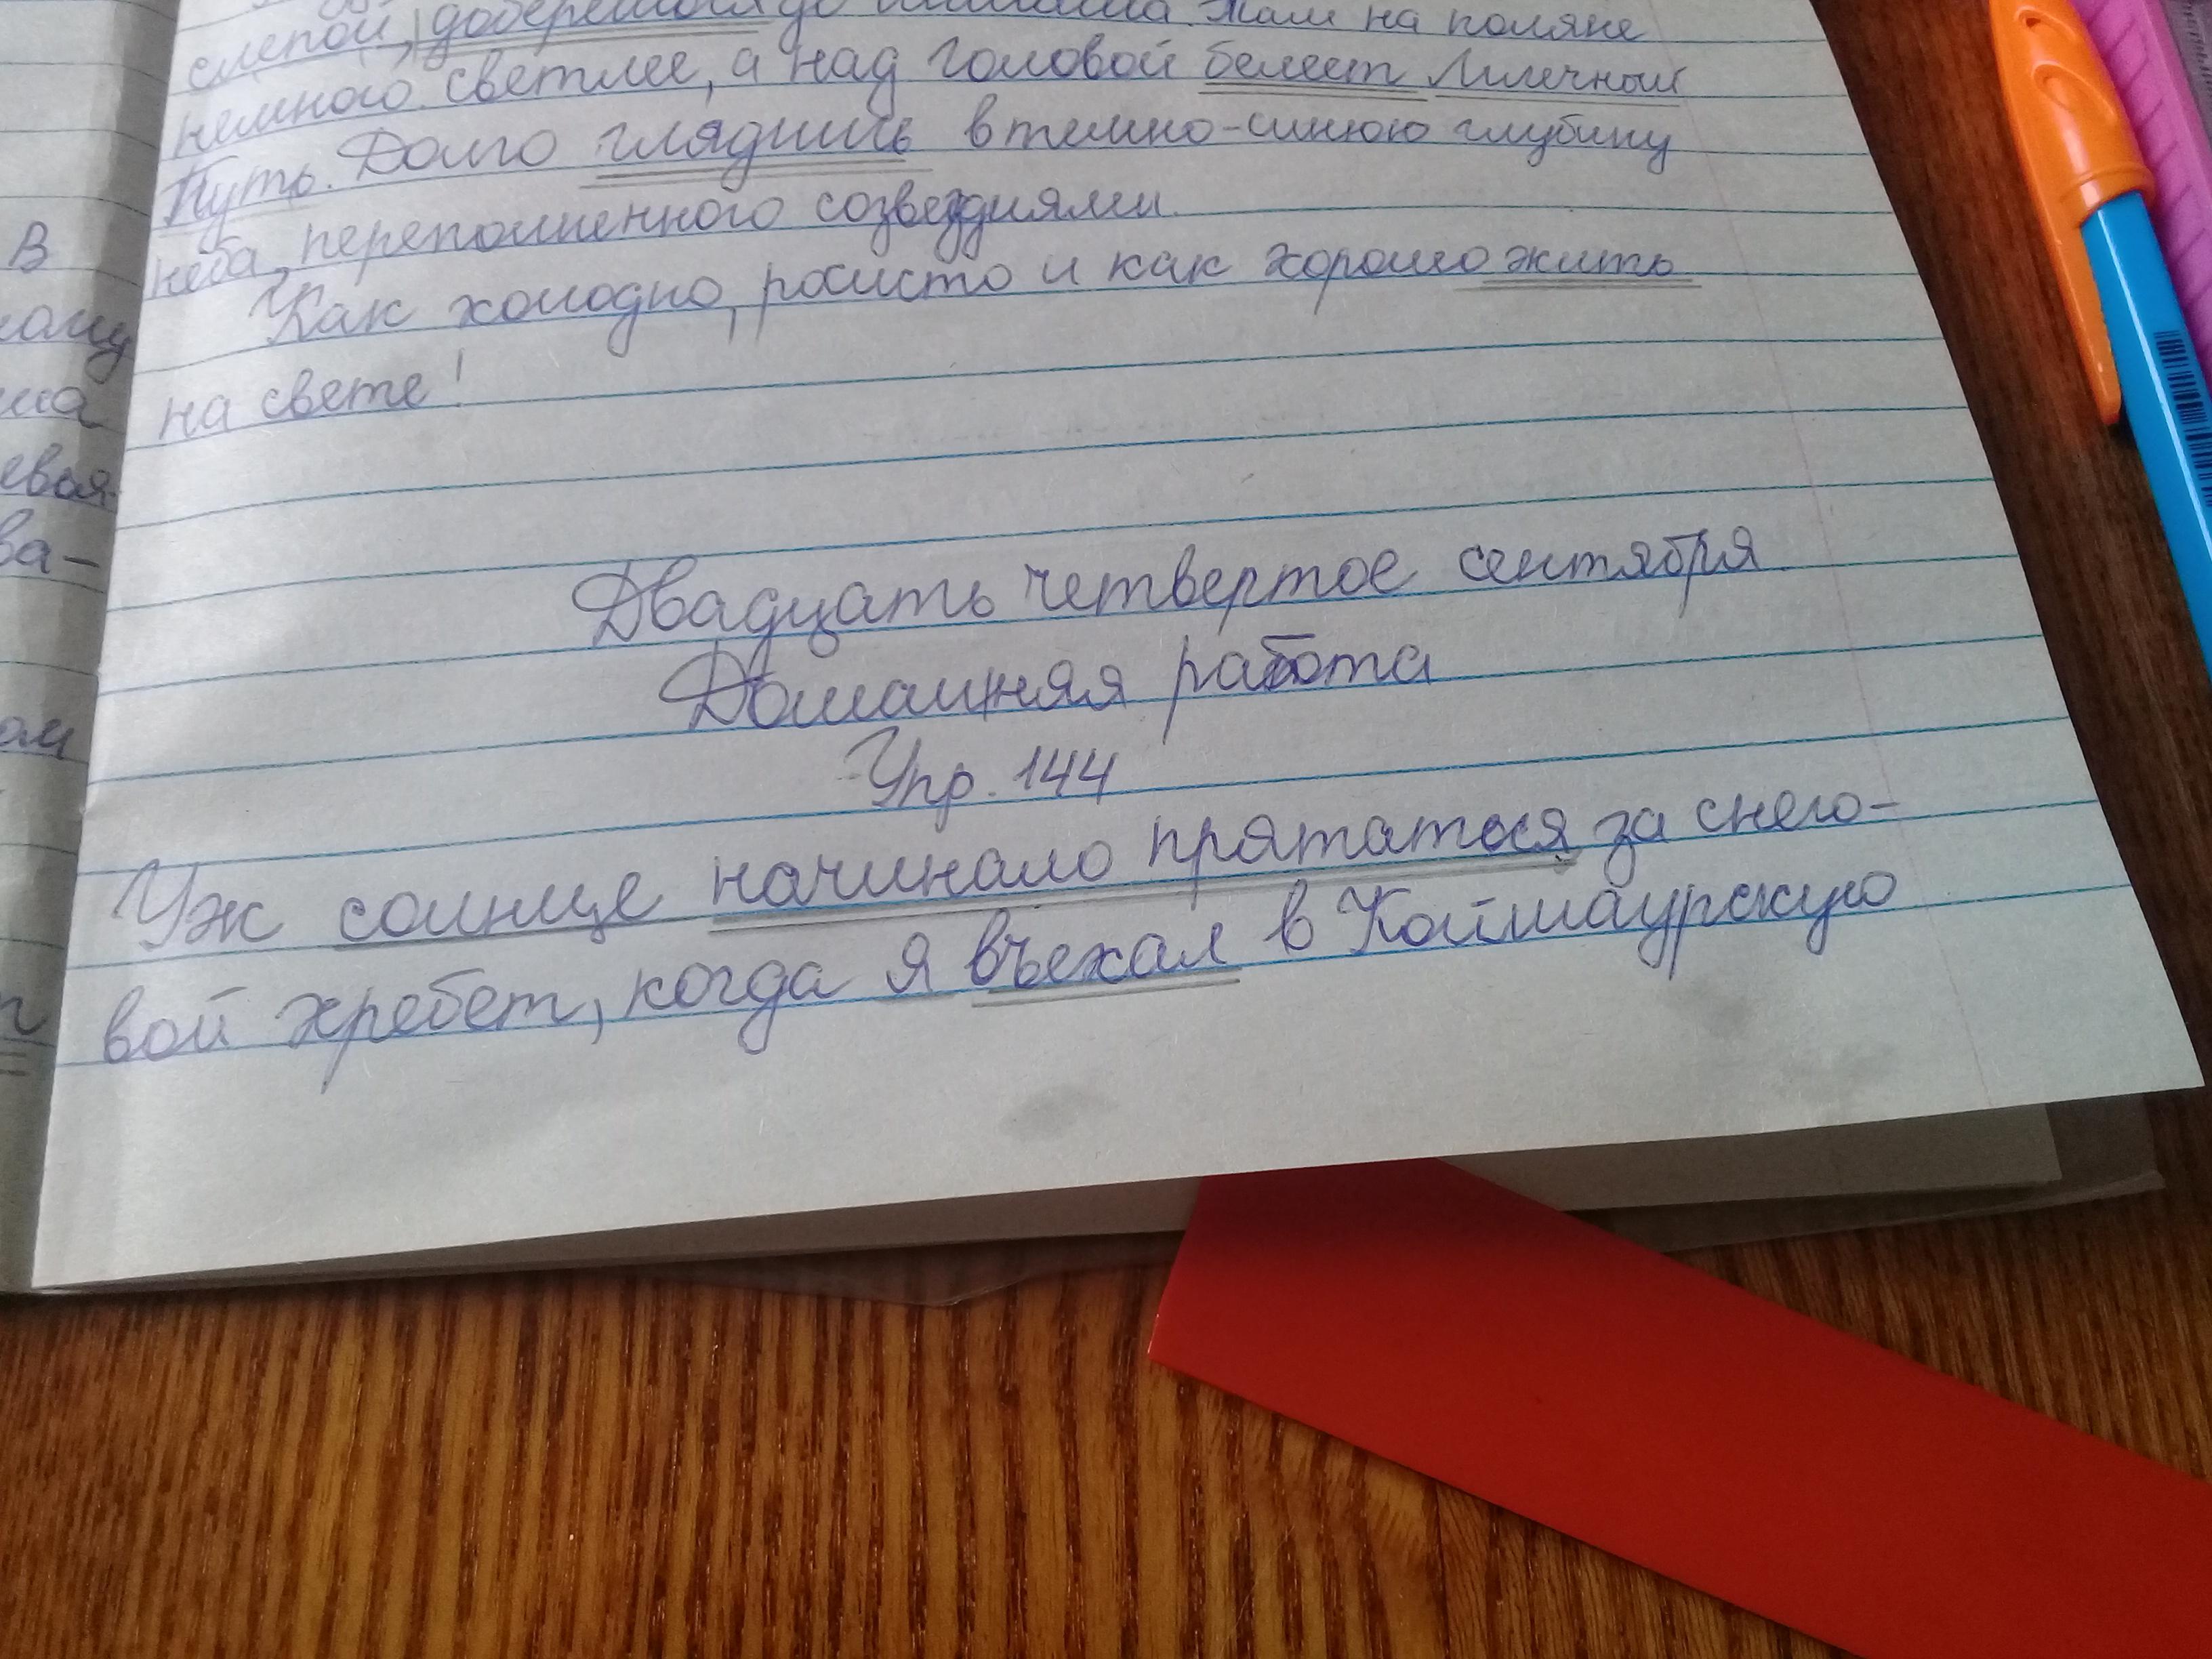 слепой, доберешься до шалаша. Там на поляне
немного светлее, а над головой белеет Млечный
Путь. Долго глядишь в темно-синюю глубину
неба, переполненного созвездиями.
Как холодно, росисто и как хорошо жить
на свете!
Двадцать четвертое сентября
Домашняя работа
Упр. 144
Уж солнце начинало прятаться за снего-
вой хребет, когда я въехал в Койшаурскую
В
ва-
ом